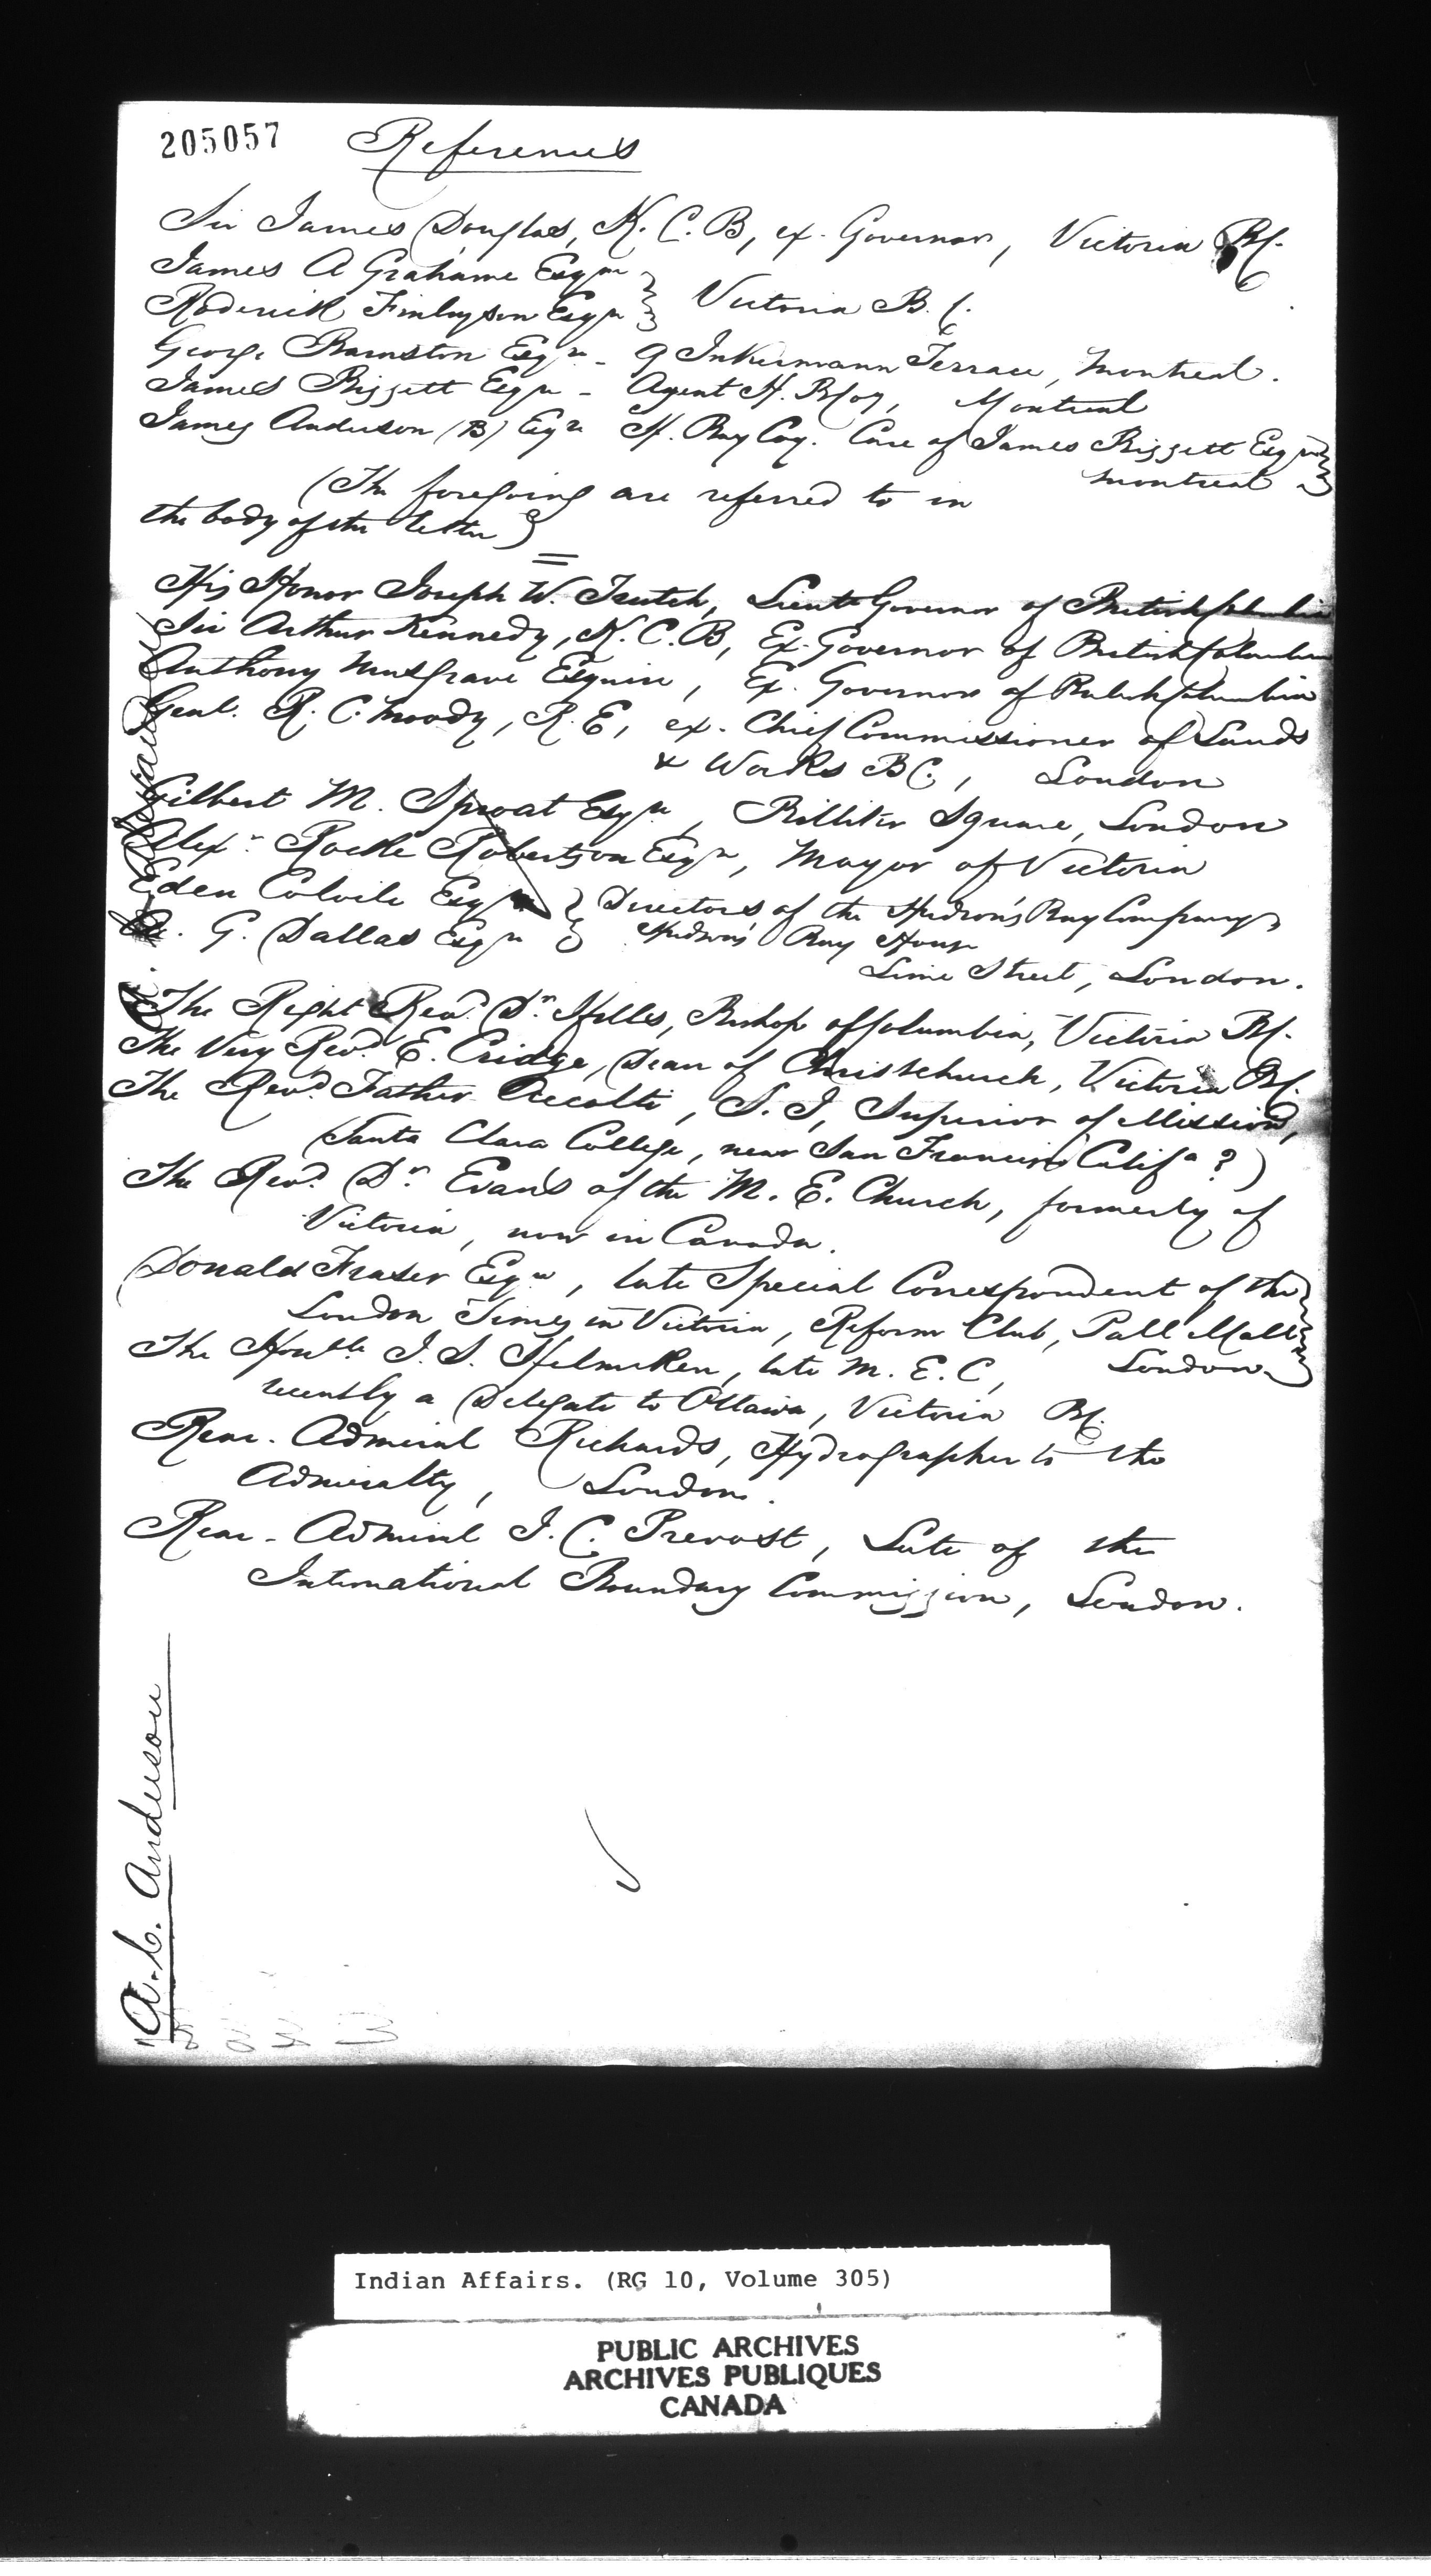 205057
References
Sir James Douglas, K. C. B, ex. Governor, Victoria BC.
James A Grahame Esqre
Roderick Finlayson Esqre } Victoria B. C.
George Barnston Esqre - 9 Inkermann Terrace, Montreal.
James Bissett Esqre - Agent H. B Coy, Montreal
James Anderson (B) Esqre H. Bay Coy. Care of James Bissett Esqre
Montreal
(The foregoing are referred to in
the body of the letter)
His Honor Joseph W. Trutch, Lieutt Governor of British Columbia
Sir Arthur Kennedy, K. C. B, Ex. Governor of British Columbia
Anthony Musgrave Esquire, Ex. Governor of British Columbia
Genl. R. C. Moody, R. E, ex. Chief Commissioner of Lands
& Works BC, London
Gilbert M. Sproat Esqre, Billiter Square, London
Alexr Rocke Robertson Esqre, Mayor of Victoria
Eden Colvile Esqre } Directors of the Hudson's Bay Company,
A. G. Dallas Esqre } Hudson's Bay House
Lime Street, London.
The Right Revd. Dr. Hills, Bishop of Columbia, Victoria BC.
The Very Revd E. Cridge, Dean of Christchurch, Victoria BC.
The Revd Father Accolti, S. J, Superior of Missions,
(Santa Clara College, near San Francisco Califa ?)
The Revd. Dr Evans of the M. E. Church, formerly of
Victoria, now in Canada.
Donald Fraser Esqre, late Special Correspondent of the
London Times in Victoria, Reform Club, Pall Mall
London
The Honble J. S. Helmcken, late M. E. C,
recently a Delegate to Ottawa, Victoria BC.
Rear-Admiral Richards, Hydrographer to the
Admiralty, London.
Rear-Admiral J. C. Prevost, Late of the
International Boundary Commission, London.
A. C. Anderson
Indian Affairs. (RG 10, Volume 305)
PUBLIC ARCHIVES
ARCHIVES PUBLIQUES
CANADA